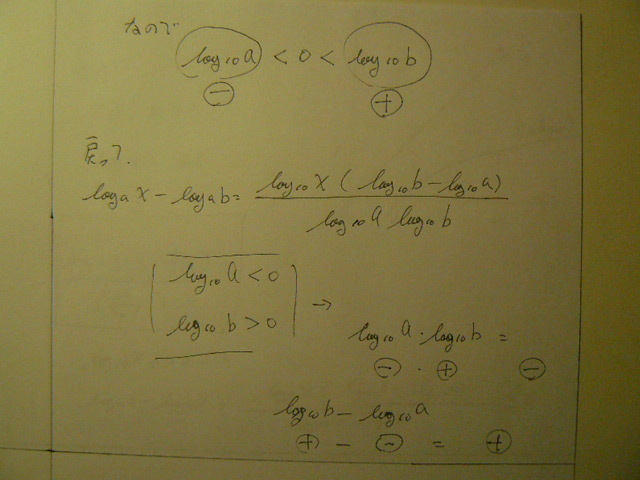 なので
log₁₀a < 0 < log₁₀b
⊖ ⊕
戻って.
logₐX − logₐb = log₁₀X ( log₁₀b − log₁₀a)
log₁₀a log₁₀b
log₁₀a < 0
log₁₀b > 0 →
log₁₀a · log₁₀b =
⊖ · ⊕ ⊖
log₁₀b − log₁₀a
⊕ − ⊖ = ⊕